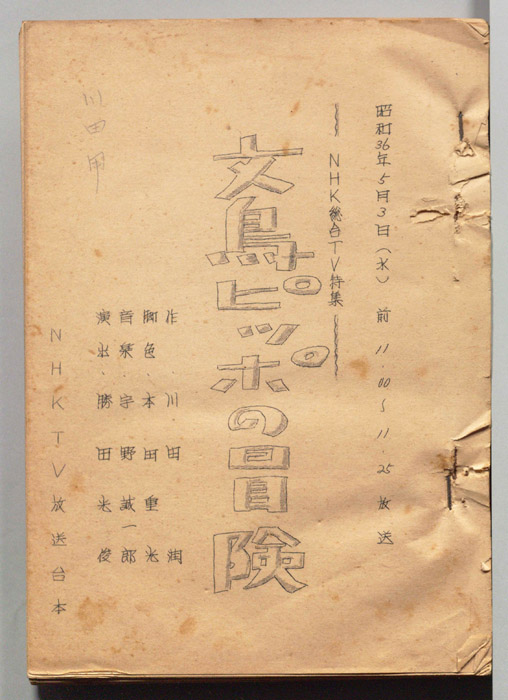 昭和36年5月3日(水) 前 11.00～11.25 放送
NHK総合TV特集
文鳥ピッポの冒険
作 川田 潤
脚色 本田重光
音楽 宇野誠一郎
演出 勝田光俊
NHKTV放送台本
川田